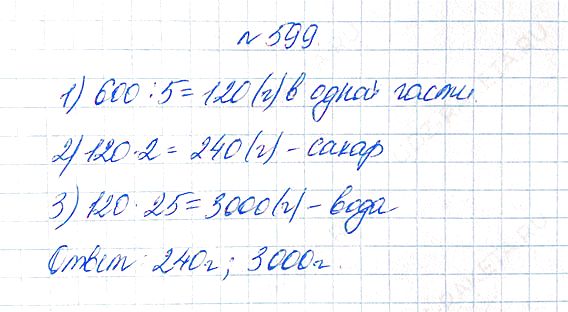 № 599
1) 600 : 5 = 120 (г) в одной части.
2) 120 · 2 = 240 (г) - сахар
3) 120 · 25 = 3000 (г) - вода
Ответ: 240г; 3000г.